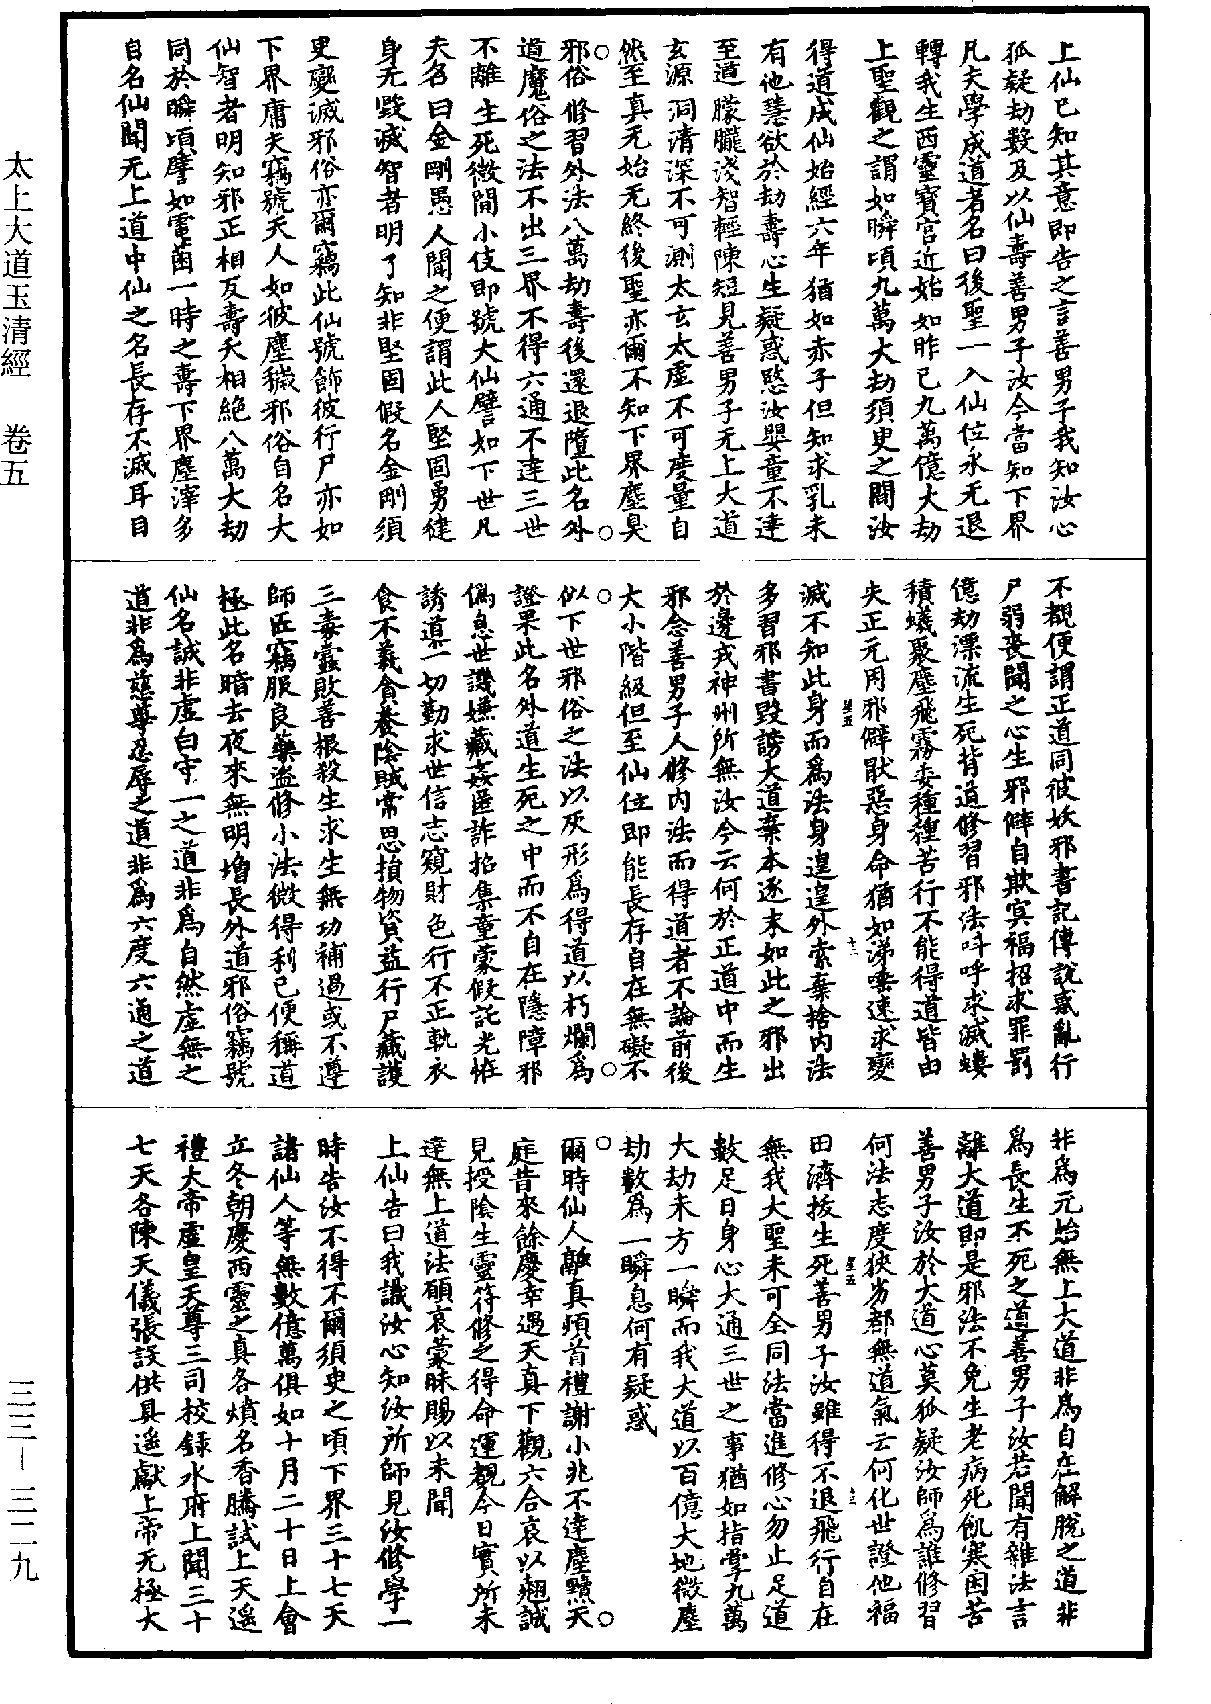 太上大道玉清經　卷五
上仙已知其意即告之言善男子我知汝心
狐疑劫數及以仙壽善男子汝今當知下界
凡夫學成道者名曰後聖一入仙位永无退
轉我生西靈寶宮近始如昨已九萬億大劫
上聖觀之謂如瞬頃九萬大劫須史之間汝
得道成仙始經六年猶如赤子但知求乳未
有他慧欲於劫壽心生疑惑愍汝嬰童不達
至道朦朧淺智輕陳短見善男子无上大道
玄源洞清深不可測太玄太虛不可度量自
然至真无始无終後聖亦爾不知下界塵臭
邪俗修習外法八萬劫壽後還退墮此名外
道魔俗之法不出三界不得六通不達三世
不離生死微間小伎即號大仙譬如下世凡
夫名曰金剛愚人聞之便謂此人堅固勇健
身无毀滅智者明了知非堅固假名金剛須
史變滅邪俗亦爾竊此仙號飾彼行尸亦如
下界庸夫竊號天人如彼塵穢邪俗自名大
仙智者明知邪正相反壽夭相絶八萬大劫
同於瞬頃譬如電菌一時之壽下界塵滓多
自名仙聞无上道中仙之名長存不滅耳目
不覩便謂正道同彼妖邪書記傳說惑亂行
尸弱喪聞之心生邪僻自欺㝠福招求罪罰
億劫漂流生死背道修習邪法叫呼求滅螻
積蟻聚塵飛霧委種種苦行不能得道皆由
失正元用邪僻猒惡身命猶如涕唾速求變
滅不知此身而爲法身遑遑外索棄捨内法
多習邪書毀謗大道棄本逐末如此之邪出
於邊戎神州所無汝今云何於正道中而生
邪念善男子人修内法而得道者不論前後
大小階級但至仙位即能長存自在無礙不
似下世邪俗之法以灰形爲得道以朽爛爲
證果此名外道生死之中而不自在隱障邪
僞息世譏嫌藏姦匿詐招集童蒙假託光恠
誘導一切勤求世信志窺財色行不正軌衣
食不義貪養陰賊常思損物資益行尸藏護
三毒蠹敗善根殺生求生無功補過或不遵
師匠竊服良藥盜修小法微得利己便稱道
極此名暗去夜來無明增長外道邪俗竊號
仙名誠非虛白守一之道非爲自然虛無之
道非爲慈尊忍辱之道非爲六度六通之道
非爲元始無上大道非爲自在解脫之道非
爲長生不死之道善男子汝若聞有雜法言
離大道即是邪法不免生老病死飢寒困苦
善男子汝於大道心莫狐疑汝師爲誰修習
何法志度狹劣都無道氣云何化世證他福
田濟拔生死善男子汝雖得不退飛行自在
無我大聖未可全同法當進修心勿止足道
數足日身心大通三世之事猶如指掌九萬
大劫未方一瞬而我大道以百億大地微塵
劫數爲一瞬息何有疑惑
爾時仙人離真頫首禮謝小兆不達塵黷天
庭昔來餘慶幸遇天真下觀六合哀以翹誠
見授陰生靈符修之得命運觀今日實所未
達無上道法願哀蒙昧賜以未聞
上仙告曰我識汝心知汝所師見汝修學一
時告汝不得不爾須史之頃下界三十七天
諸仙人等無數億萬俱如十月二十日上會
立冬朝慶西靈之真各燌名香騰試上天遥
禮大帝虛皇天尊三司校錄水府上聞三十
七天各陳天儀張設供具遥獻上帝无極大
星五
十二
星五
十三
三三—三二九